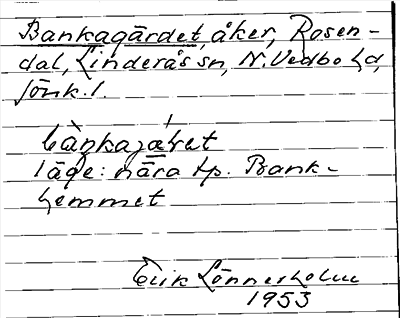 Bankagärdet, åker, Rosen-
dal, Linderås sn, N. Vedbo hd,
Jönk. l.
läge: nära tp. Bank-
hemmet
Erik Lönnerholm
1953